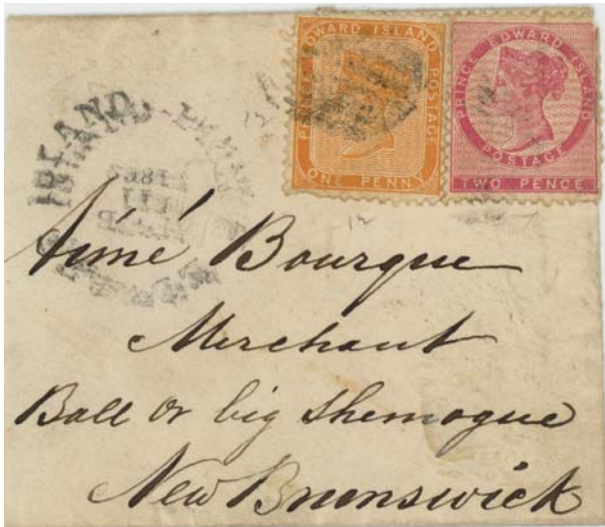 PRINCE EDWARD ISLAND POSTAGE
ONE PENNY
PRINCE EDWARD ISLAND
POSTAGE
TWO PENCE
ISLAND
Aimé Bourque
Merchant
Ball or big Shemogue
New Brunswick